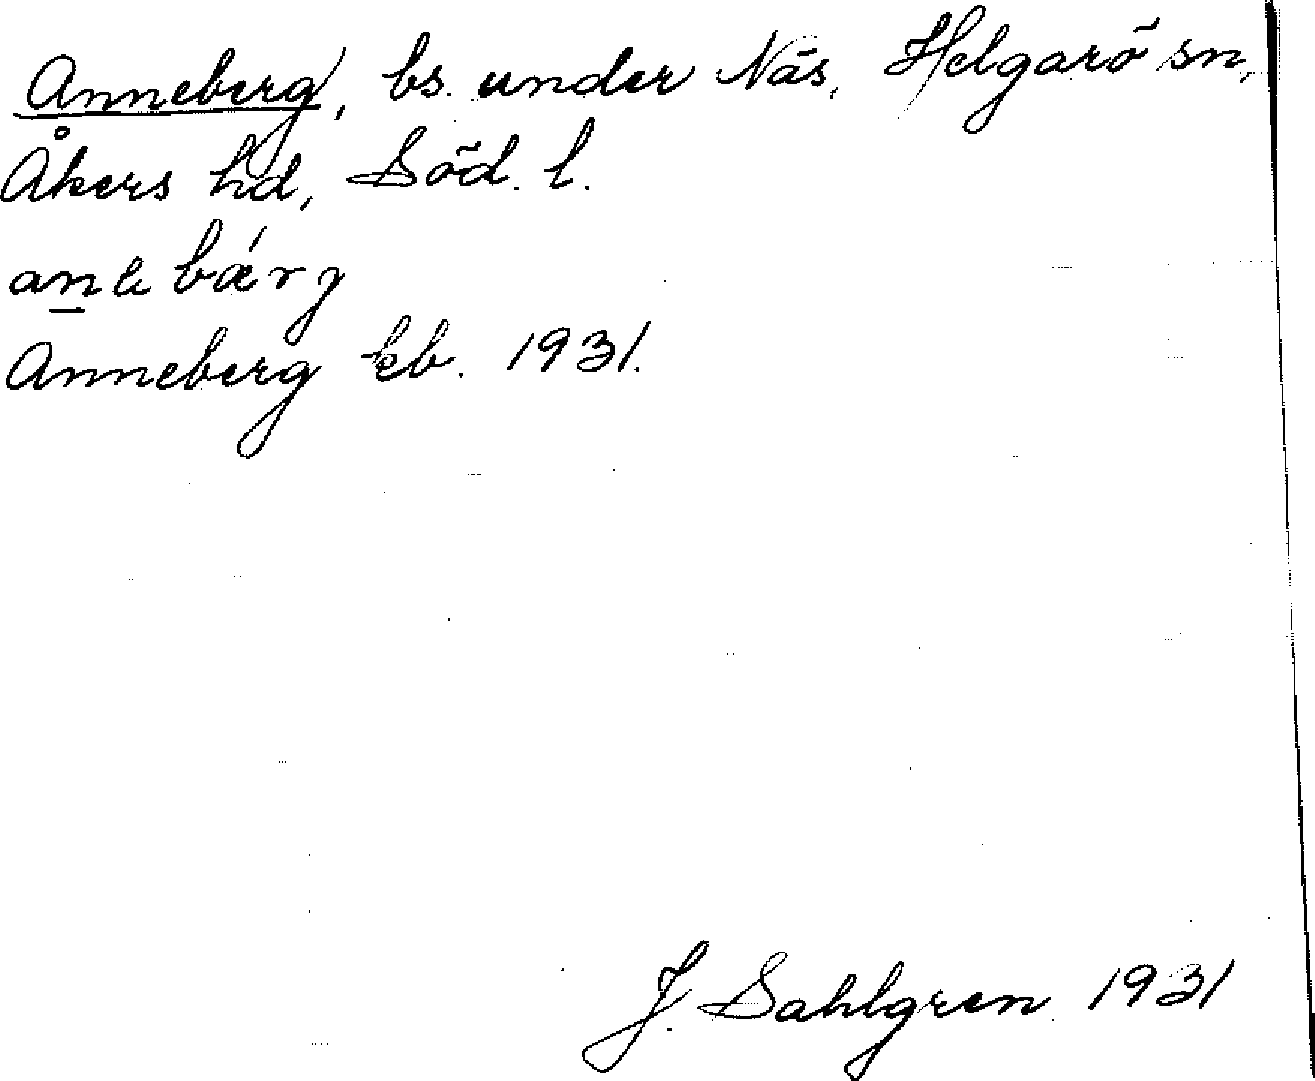 Anneberg, bs. under Näs, Helgarö sn,
Åkers hd, Söd. l.
bǽrj
Anneberg kb. 1931.
J. Sahlgren 1931